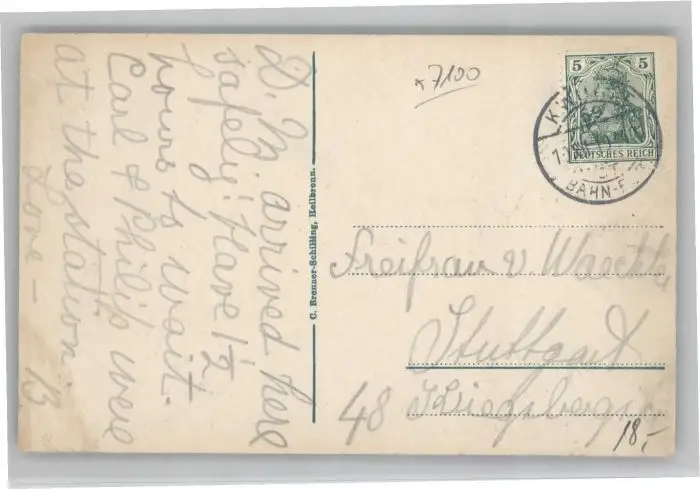 D. M arrived here
safely! Have 1½
hours to wait.
Carl & Philip were
at the station.
Love – B
C. Brenner-Schilling, Heilbronn.
x 7100
5 5
DEUTSCHES REICH
BAHN-P
Freifrau v. Waechter
Stuttgart
48
18,-